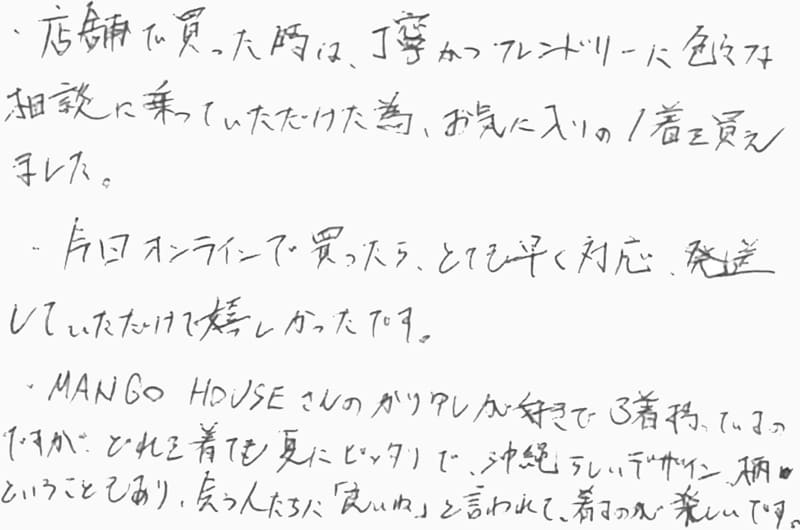 ・店舗で買った時は、丁寧かつフレンドリーに色々な
相談に乗っていただけた為、お気に入りの1着を買え
ました。
・今回オンラインで買ったら、とても早く対応、発送
していただけて嬉しかったです。
・MANGO HOUSEさんのかりゆしが好きで3着持っているの
ですが、どれを着ても夏にピッタリで、沖縄らしいデザイン、柄
ということもあり、会う人たちに「良いね」と言われて、着るのが楽しいです。